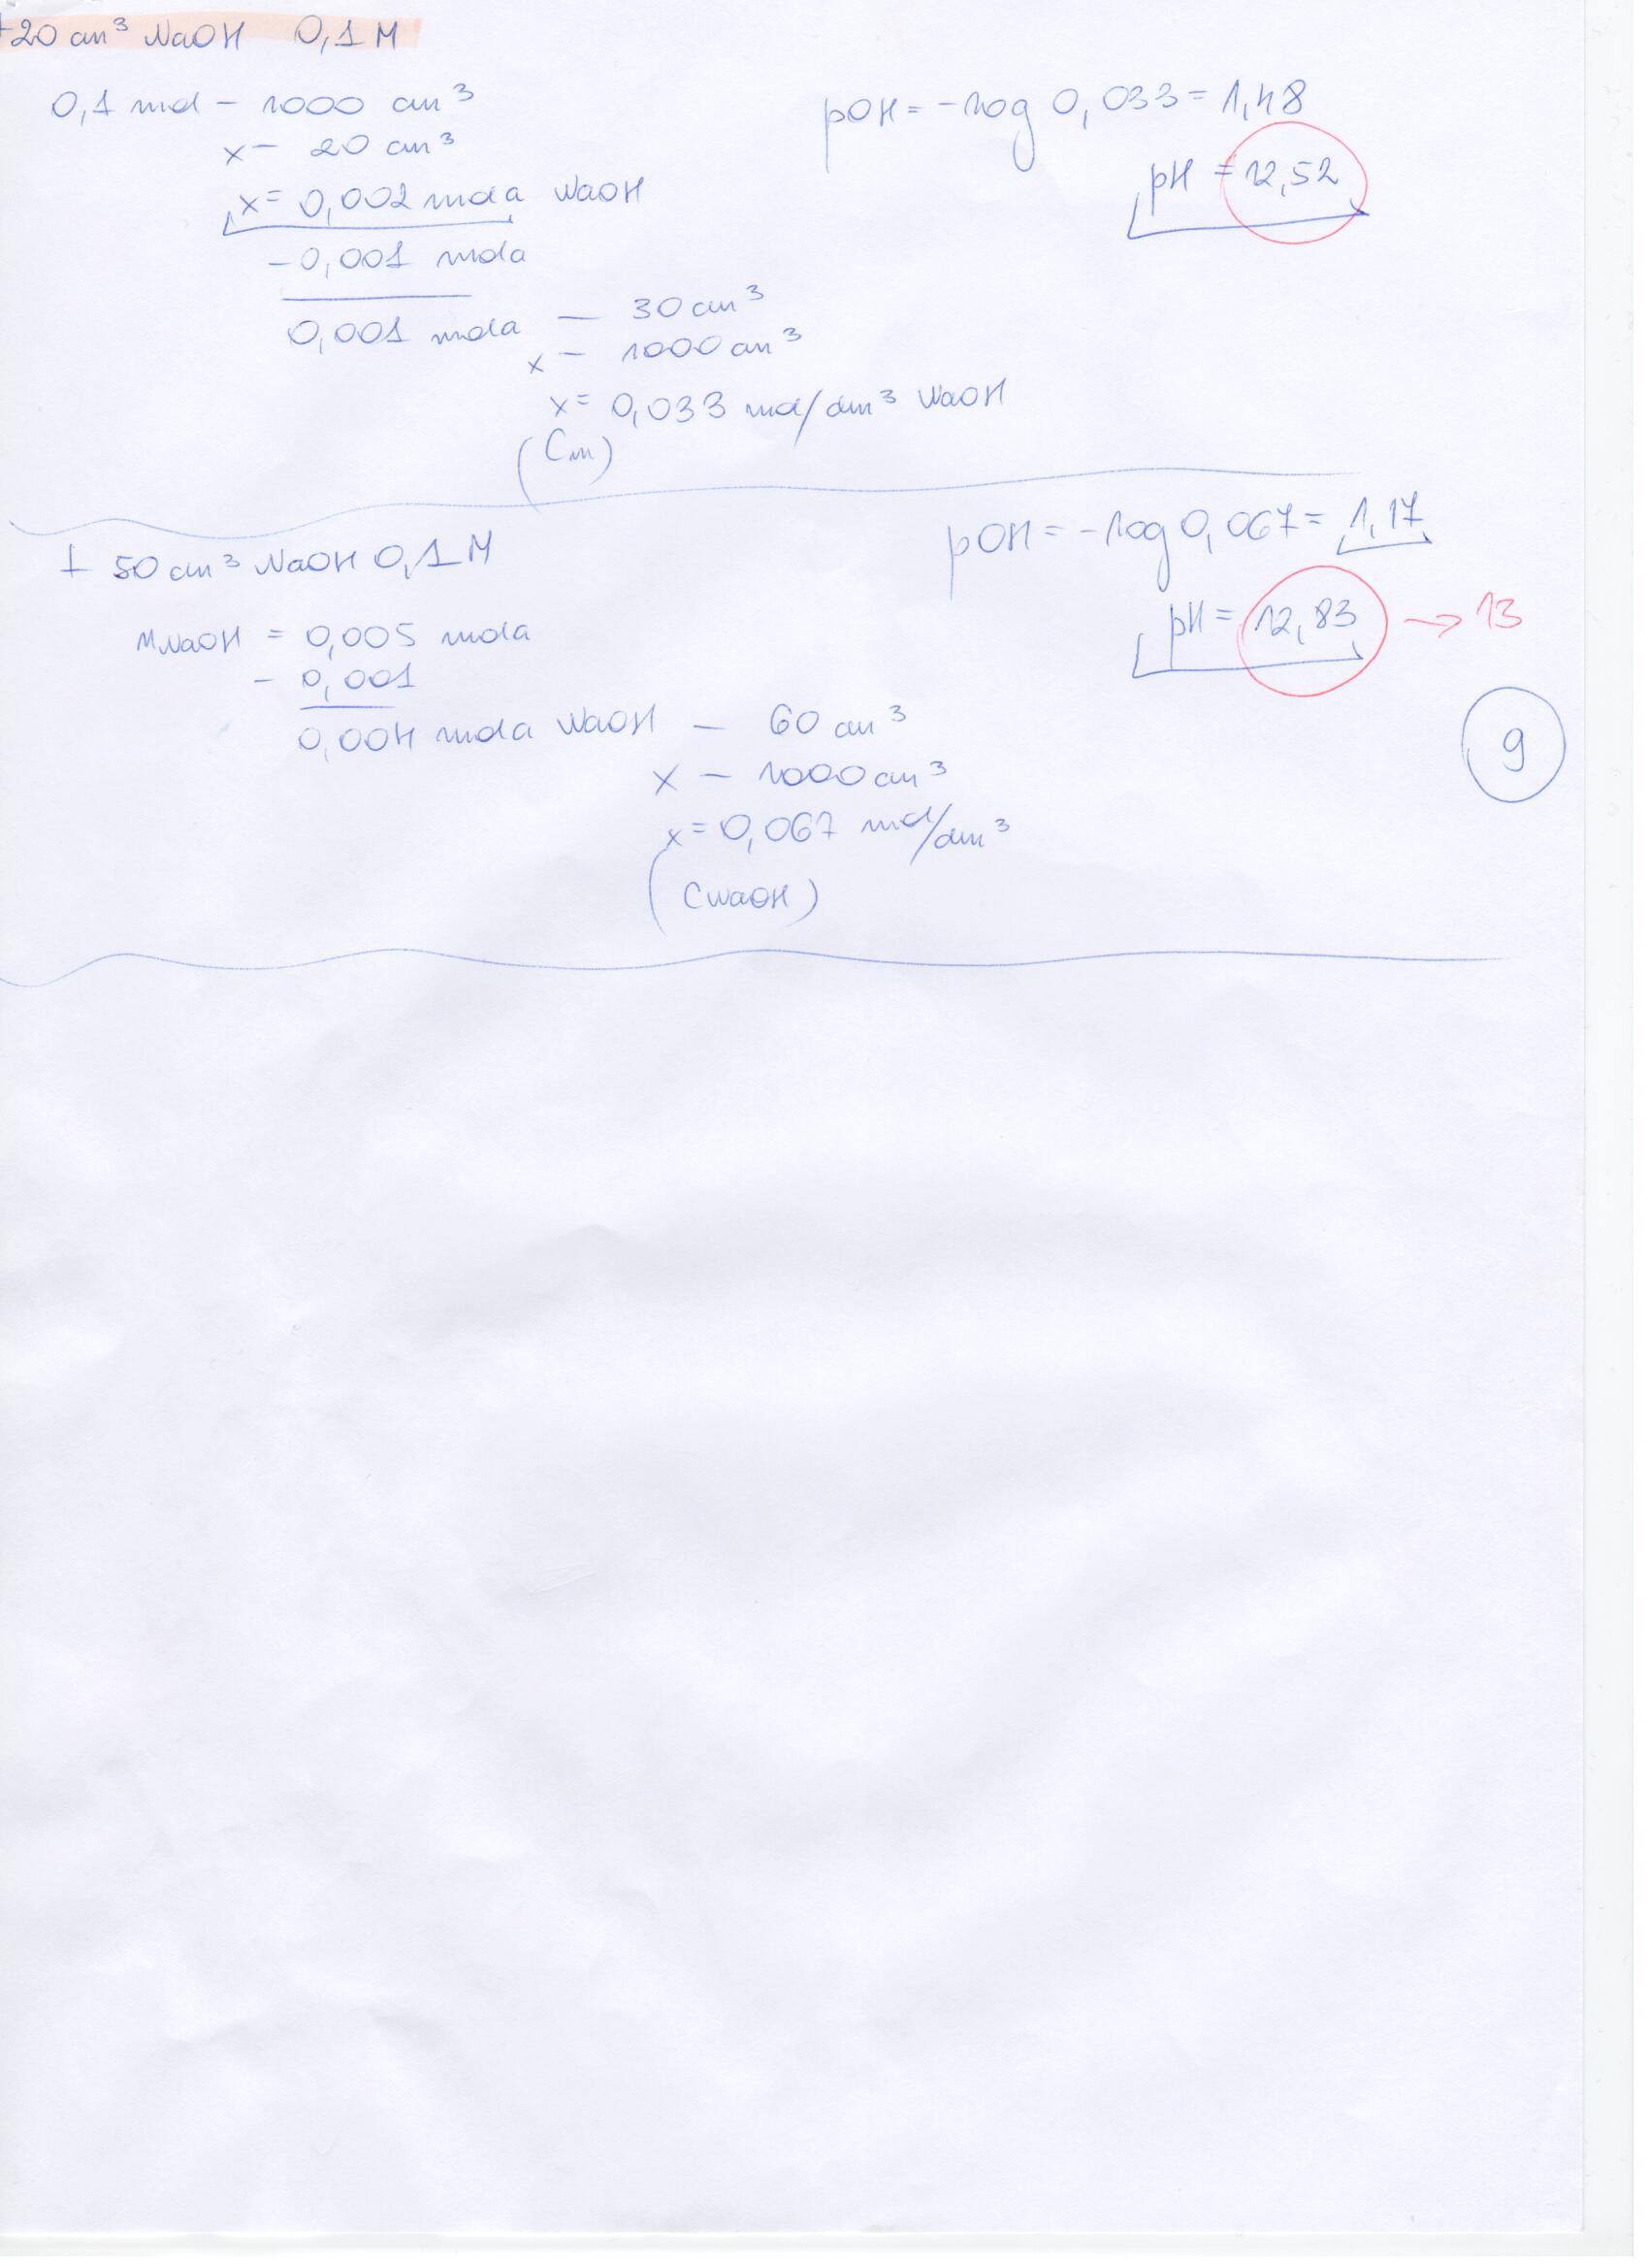 +20 cm³ NaOH 0,1 M
0,1 mol – 1000 cm³
x – 20 cm³
x = 0,002 mola NaOH
– 0,001 mola
0,001 mola – 30 cm³
x – 1000 cm³
x = 0,033 mol/dm³ NaOH
(Cm)
pOH = -log 0,033 = 1,48
pH = 12,52
+ 50 cm³ NaOH 0,1 M
nNaOH = 0,005 mola
– 0,001
0,004 mola NaOH – 60 cm³
x – 1000 cm³
x = 0,067 mol/dm³
(CNaOH)
pOH = -log 0,067 = 1,17
pH = 12,83 → 13
9